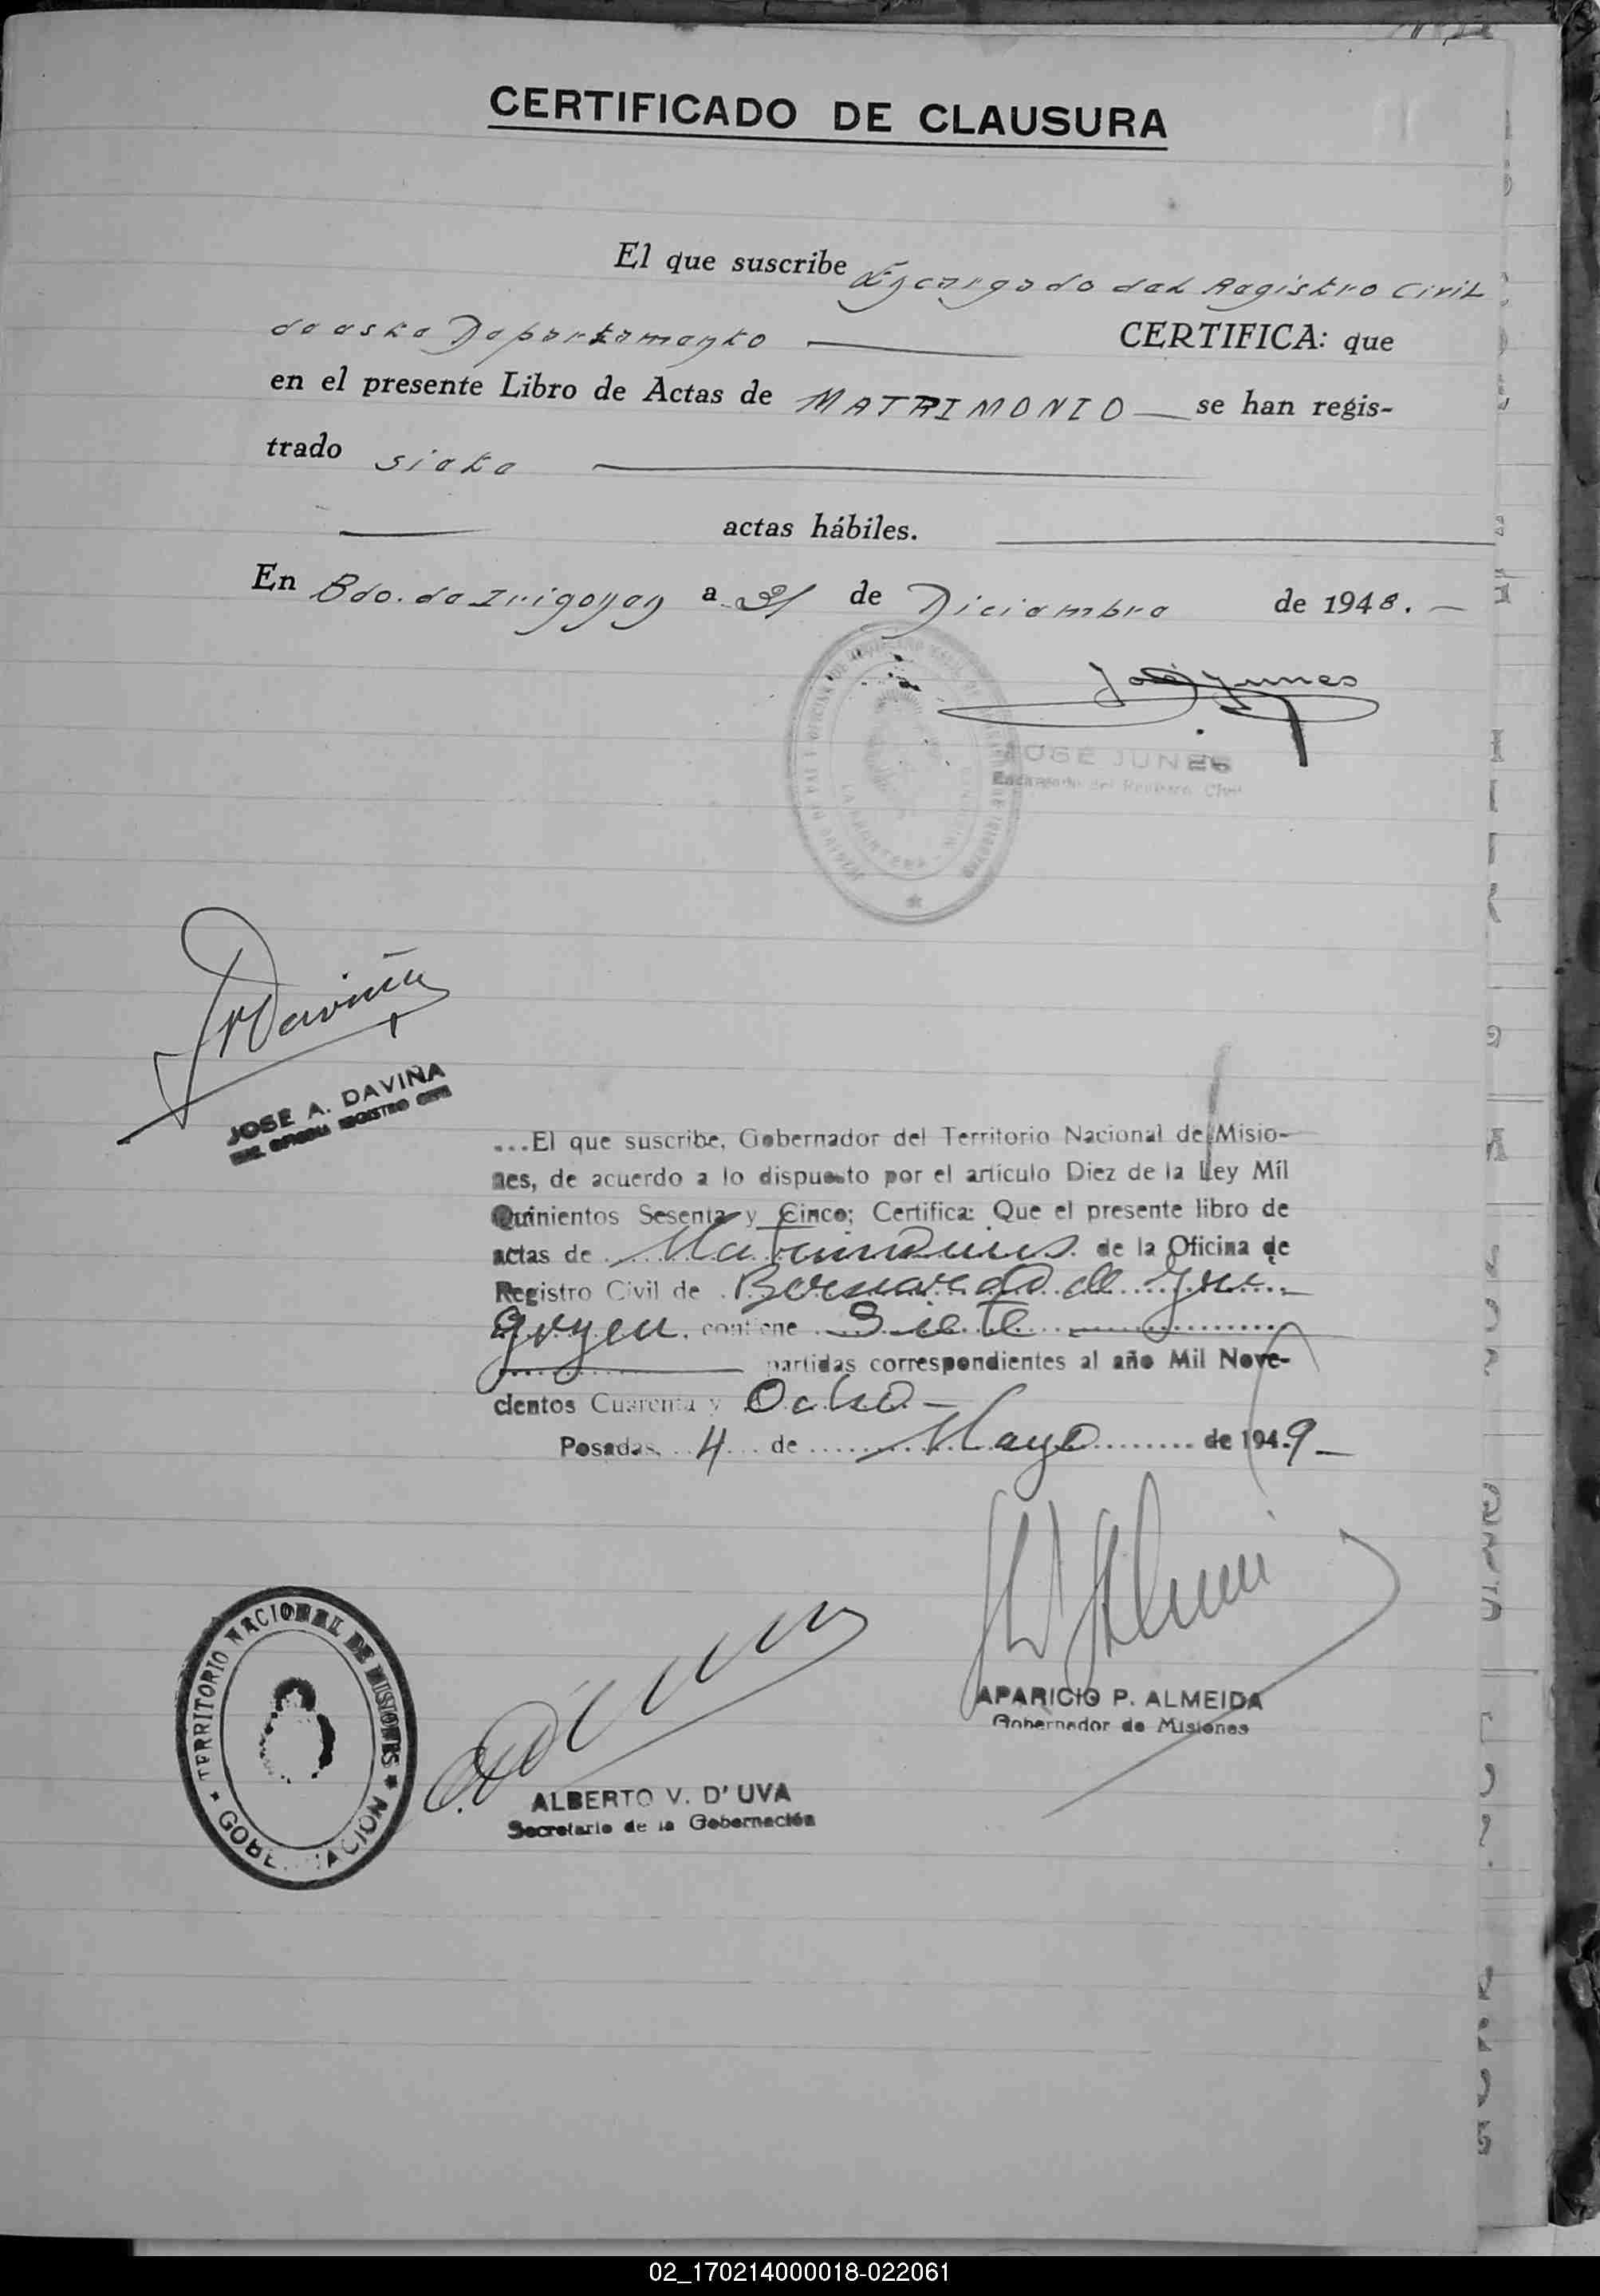 CERTIFICADO DE CLAUSURA
El que suscribe Encargado del Registro Civil
de este Departamento CERTIFICA: que
en el presente Libro de Actas de MATRIMONIO se han regis-
trado siete
actas hábiles.
En Bdo. de Irigoyen a 31 de Diciembre de 1948.
José Junes
JOSÉ JUNES
Encargado del Registro Civil
JOSE A. DAVIÑA
REGISTRO CIVIL
...El que suscribe, Gobernador del Territorio Nacional de Misio-
nes, de acuerdo a lo dispuesto por el artículo Diez de la Ley Mil
Quinientos Sesenta y Cinco; Certifica: Que el presente libro de
actas de Matrimonios de la Oficina de
Registro Civil de Bernardo de Yri
goyen, contiene Siete
partidas correspondientes al año Mil Nove-
cientos Cuarenta y Ocho
Posadas, 4 de Mayo de 1949
TERRITORIO NACIONAL DE MISIONES
GOBERNACION
APARICIO P. ALMEIDA
Gobernador de Misiones
ALBERTO V. D'UVA
Secretario de la Gobernación
02_170214000018-022061